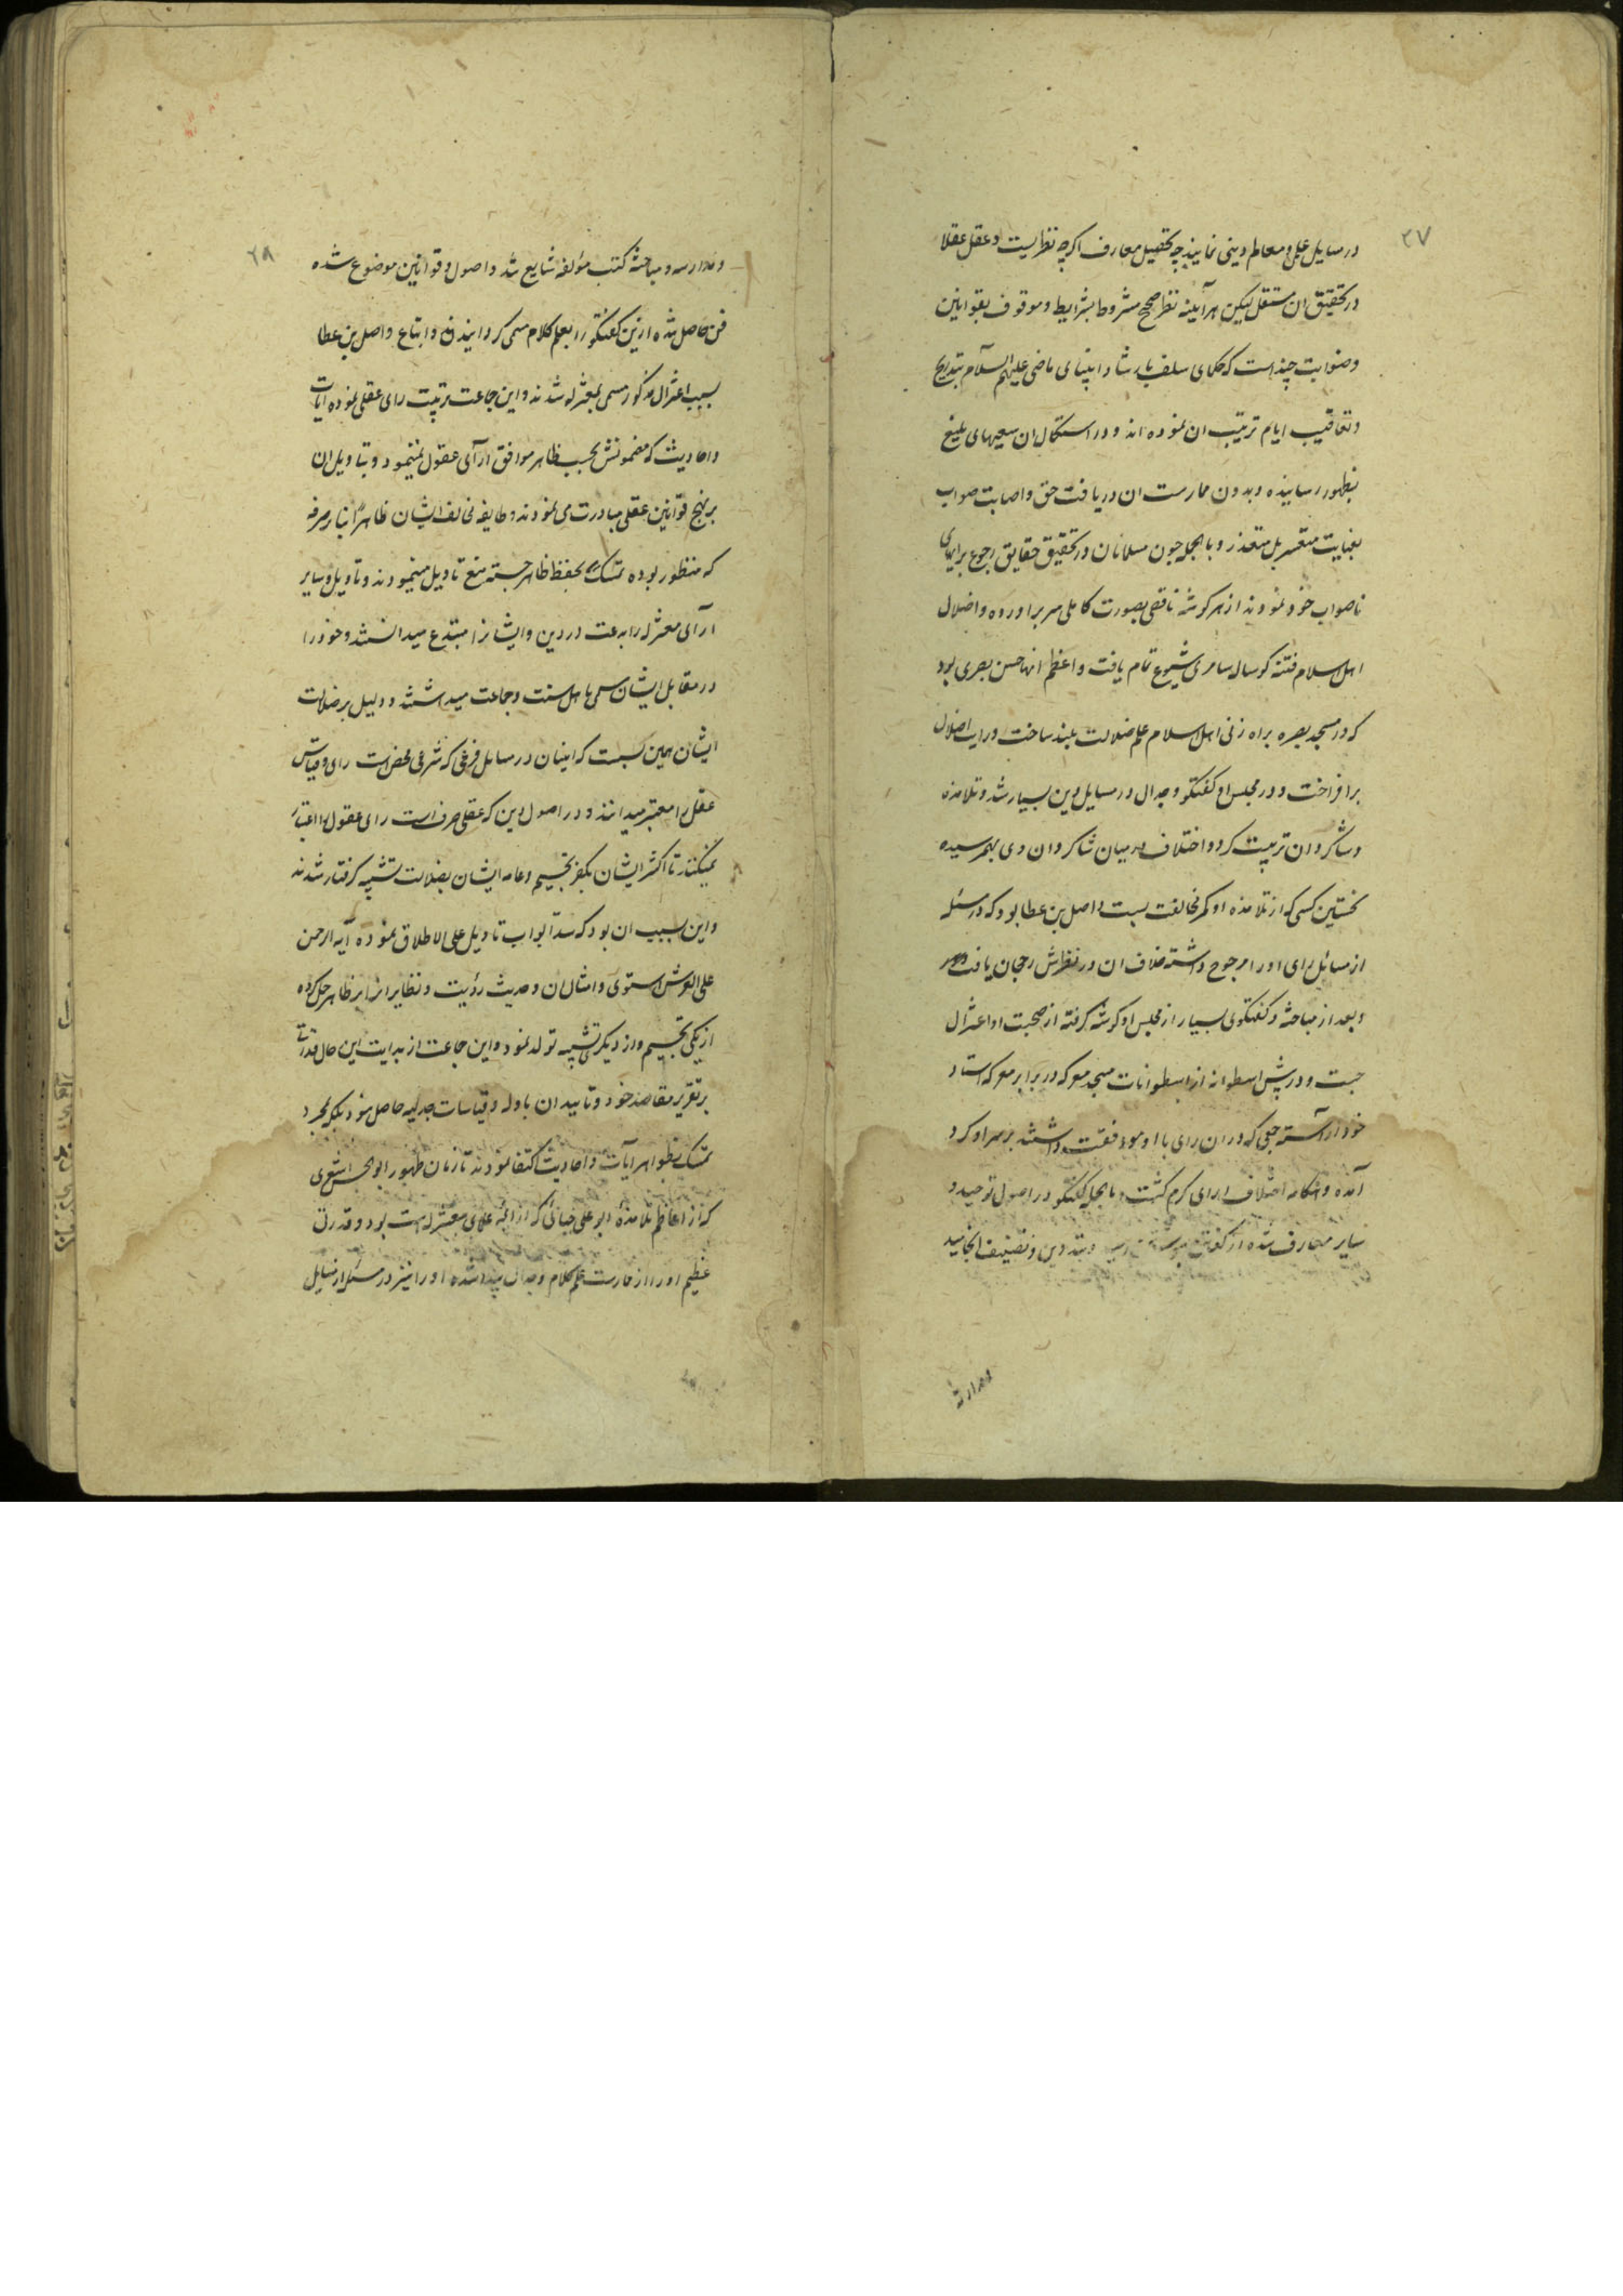 ۲۷
در مسایل علمی و معالم دینی نمایند چه تحصیل معارف اگرچه نظریست و عقل عقلا
در تحقیق ان مستقل لیکن هرآینه نظر صحیح مشروط بشرایط و موقوف بقوانین
و ضوابت چند است که حکمای سلف بارشاد انبیای ماضی علیهم السلام بتدریج
و تعاقیب ایام ترتیب ان نموده اند و در استکمال ان سعیهای بلیغ
بظهور رسانیده و بدون ممارست ان دریافت حق و اصابت صواب
بغایت متعسر بل متعذر و بالجمله چون مسلمانان در تحقیق حقایق رجوع برایهای
ناصواب خود نمودند از هر کوشه ناقصی بصورت کاملی سر براورده و اضلال
اهل اسلام فتنه کوساله سامری شیوع تمام یافت و اعظم انها حسن بصری بود
که در مسجد بصره براه زنی اهل اسلام علم ضلالت بلند ساخت و رایت اضلال
برافراخت و در مجلس او کفتکو و جدال در مسایل دین بسیار شد و تلامذه
و شاکردان تربیت کرد و اختلاف در میان شاکردان وی بهم رسیده
نخستین کسی که از تلامذه او کمر مخالفت بست واصل بن عطا بود که در مسئله
از مسائل رای او را مرجوح داشته خلاف ان در نظرش رجحان یافت
و بعد از مباحثه و کفتکوی بسیار از مجلس او کوشه کرفته از صحبت او اعتزال
جست و در پیش اسطوانه از اسطوانات مسجد معرکه در برابر معرکه استاد
خود آراسته جمعی که در ان رای با او موافقت داشتند بر سر او کرد
آمده و هنکامه اختلاف ارای کرم کشت و بالجمله کفتکو در اصول توحید و
سایر معارف شده از کفتن بنوشتن رسید و بتدوین و تصنیف انجامید
و مدارسه
۲۸
و مدارسه و مباحثه کتب مؤلفه شایع شد و اصول و قوانین موضوع شده
فن حاصل شده ازین کفتکو را بعلم کلام مسمی کردانیدند و اتباع واصل بن عطا
بسبب اعتزال مذکور مسمی بمعتزله شدند و این جماعت تربیت رای عقلی نموده آیات
و احادیث که مضمونش بحسب ظاهر موافق آرای عقول نمینمود و بتاویل ان
بر نهج قوانین عقلی مبادرت می نمودند و طایفه مخالف ایشان ظاهرا بنابر صرفه
که منظور بوده تمسک بحفظ ظاهر جسته منع تاویل مینمودند و تاویل و سایر
آرای معتزله را بدعت در دین و ایشانرا مبتدع میدانستند و خود را
در مقابل ایشان مسمی باهل سنت و جماعت میداشتند و دلیل بر ضلالت
ایشان همین بست که اینان در مسایل فرعی که شرعی محض است رای و قیاس
عقل را معتبر میدانند و در اصول دین که عقلی صرف است رای عقول را اعتبار
نمیکنند تا اکثر ایشان بکفر تجسیم و عامه ایشان بضلالت تشبیه کرفتار شدند
و این بسبب ان بود که سد ابواب تاویل علی الاطلاق نموده آیه الرحمن
علی العرش استوی و امثال ان و حدیث رؤیت و نظایر انرا بر ظاهر حمل کرده
از یکی تجسیم و از دیکر تشبیه تولد نمود و این جماعت از بدایت این حال قدرتی
بر تقریر مقاصد خود و تایید ان بادله و قیاسات جدلیه حاصل نبود بلکه بمجرد
تمسک بظواهر آیات و احادیث اکتفا نمودند تا زمان ظهور ابو الحسن اشعری
که از اعاظم تلامذه ابو علی جبائی که از ائمه علمای معتزله است بود و قدرت
عظیم او را از ممارست علم کلام و جدال پیدا شده او را نیز در مسئله از مسایل